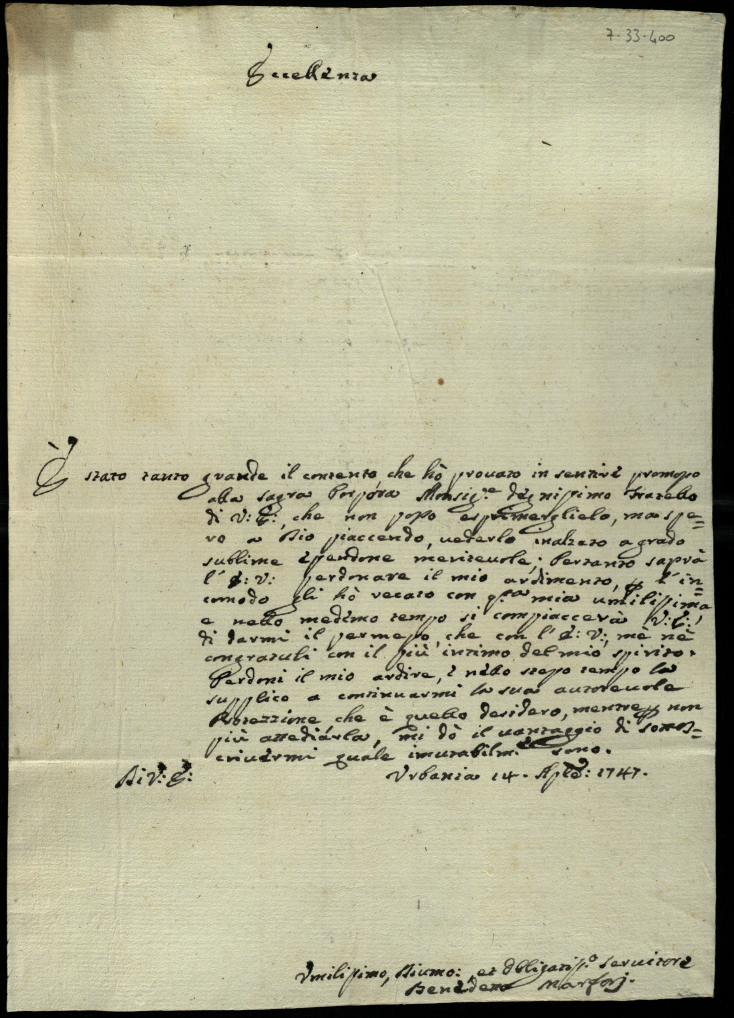 7-33-400
Eccellenza
È stato tanto grande il contento che hò prouato in sentire promosso
alla sagra Porpora Monsig.re degnissimo Fratello
di V: E:, che non posso esprimerglielo, ma spe=
ro a Dio piacendo, uederlo inalzato a grado
sublime essendone meriteuole; Pertanto saprà
l'E: V: perdonare il mio ardimento, e l'in=
comodo gli hò recato con q.sta mia umilissima
e nello medimo tempo si compiaccerà V: E:
di darmi il permesso, che con l'E: V: mè nè
congratuli con il più intimo del mio spirito.
Perdoni il mio ardire, e nello stesso tempo la
supplico a continuarmi la sua autoreuole
Protezzione, che è quello desidero, mentre p non
più attediarla, mi dò il uantaggio di sottos=
criuermi quale imutabilm.te sono.
Di V: E: Urbania 14. Aple: 1747.
Umilissimo, Diumo: et Obligatiss.o Seruitore
Benedetto Marforj.